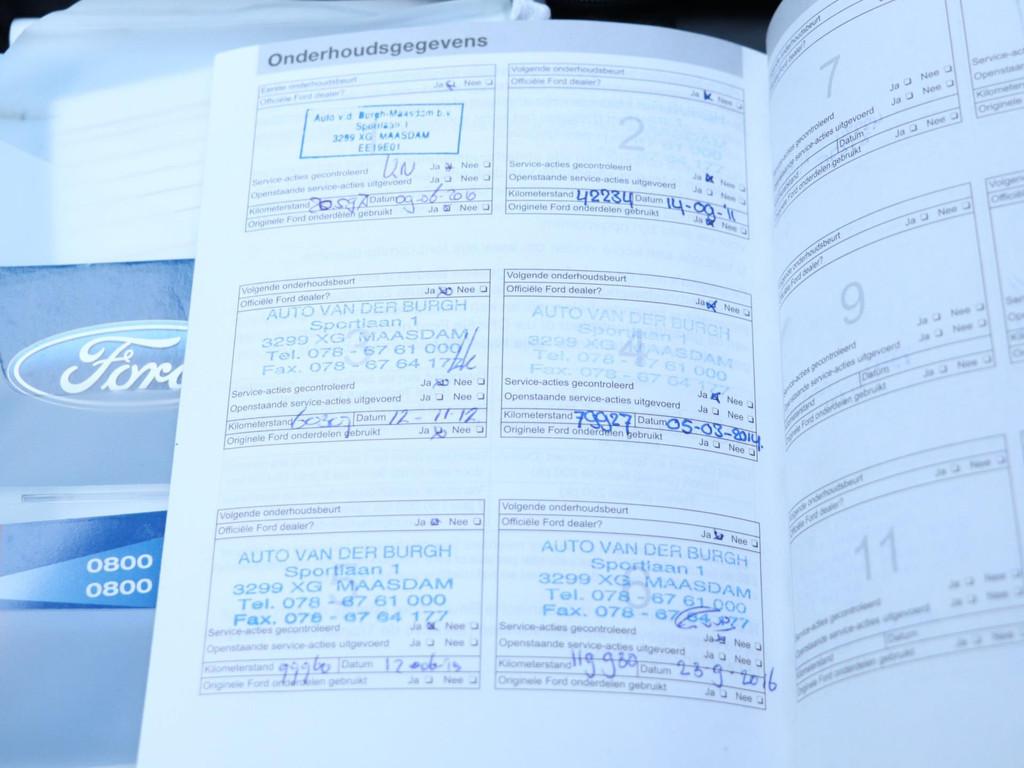 Onderhoudsgegevens
Eerste onderhoudsbeurt
Officiële Ford dealer? Ja Nee
Auto v.d. Burgh-Maasdam b.v.
Sportlaan 1
3299 XG MAASDAM
EE19E01
Service-acties gecontroleerd Ja Nee
Openstaande service-acties uitgevoerd Ja Nee
Kilometerstand Datum 09-06-2010
Originele Ford onderdelen gebruikt Ja Nee
Volgende onderhoudsbeurt
Officiële Ford dealer? Ja Nee
2
Service-acties gecontroleerd Ja Nee
Openstaande service-acties uitgevoerd Ja Nee
Kilometerstand 42234 Datum 14-09-11
Originele Ford onderdelen gebruikt Ja Nee
Volgende onderhoudsbeurt
Officiële Ford dealer? Ja Nee
AUTO VAN DER BURGH
Sportlaan 1
3299 XG MAASDAM
Tel. 078 - 67 61 000
Fax. 078 - 67 64 177
Service-acties gecontroleerd Ja Nee
Openstaande service-acties uitgevoerd Ja Nee
Kilometerstand 60307 Datum 12-11-12
Originele Ford onderdelen gebruikt Ja Nee
Volgende onderhoudsbeurt
Officiële Ford dealer? Ja Nee
AUTO VAN DER BURGH
Sportlaan 1
4
3299 XG MAASDAM
Tel. 078 - 67 61 000
Fax. 078 - 67 64 177
Service-acties gecontroleerd Ja Nee
Openstaande service-acties uitgevoerd Ja Nee
Kilometerstand 79927 Datum 05-03-2014.
Originele Ford onderdelen gebruikt Ja Nee
Volgende onderhoudsbeurt
Officiële Ford dealer? Ja Nee
AUTO VAN DER BURGH
Sportlaan 1
3299 XG MAASDAM
Tel. 078 - 67 61 000
Fax. 078 - 67 64 177
Service-acties gecontroleerd Ja Nee
Openstaande service-acties uitgevoerd Ja Nee
Kilometerstand 99960 Datum
Originele Ford onderdelen gebruikt Ja Nee
Volgende onderhoudsbeurt
Officiële Ford dealer? Ja Nee
AUTO VAN DER BURGH
Sportlaan 1
3299 XG MAASDAM
Tel. 078 - 67 61 000
Fax. 078 - 67 64 177
Service-acties gecontroleerd Ja Nee
Openstaande service-acties uitgevoerd Ja Nee
Kilometerstand 119930 Datum 23-9-2016
Originele Ford onderdelen gebruikt Ja Nee
Ford
0800
0800
Volgende onderhoudsbeurt
Officiële Ford dealer? Ja Nee
7
Ja Nee
Ja Nee
Datum
Originele Ford onderdelen gebruikt Ja Nee
Volgende onderhoudsbeurt
Officiële Ford dealer? Ja Nee
9
Ja Nee
Ja Nee
Datum
Originele Ford onderdelen gebruikt Ja Nee
Volgende onderhoudsbeurt
Officiële Ford dealer? Ja Nee
11
Ja Nee
Ja Nee
Datum
Originele Ford onderdelen gebruikt Ja Nee